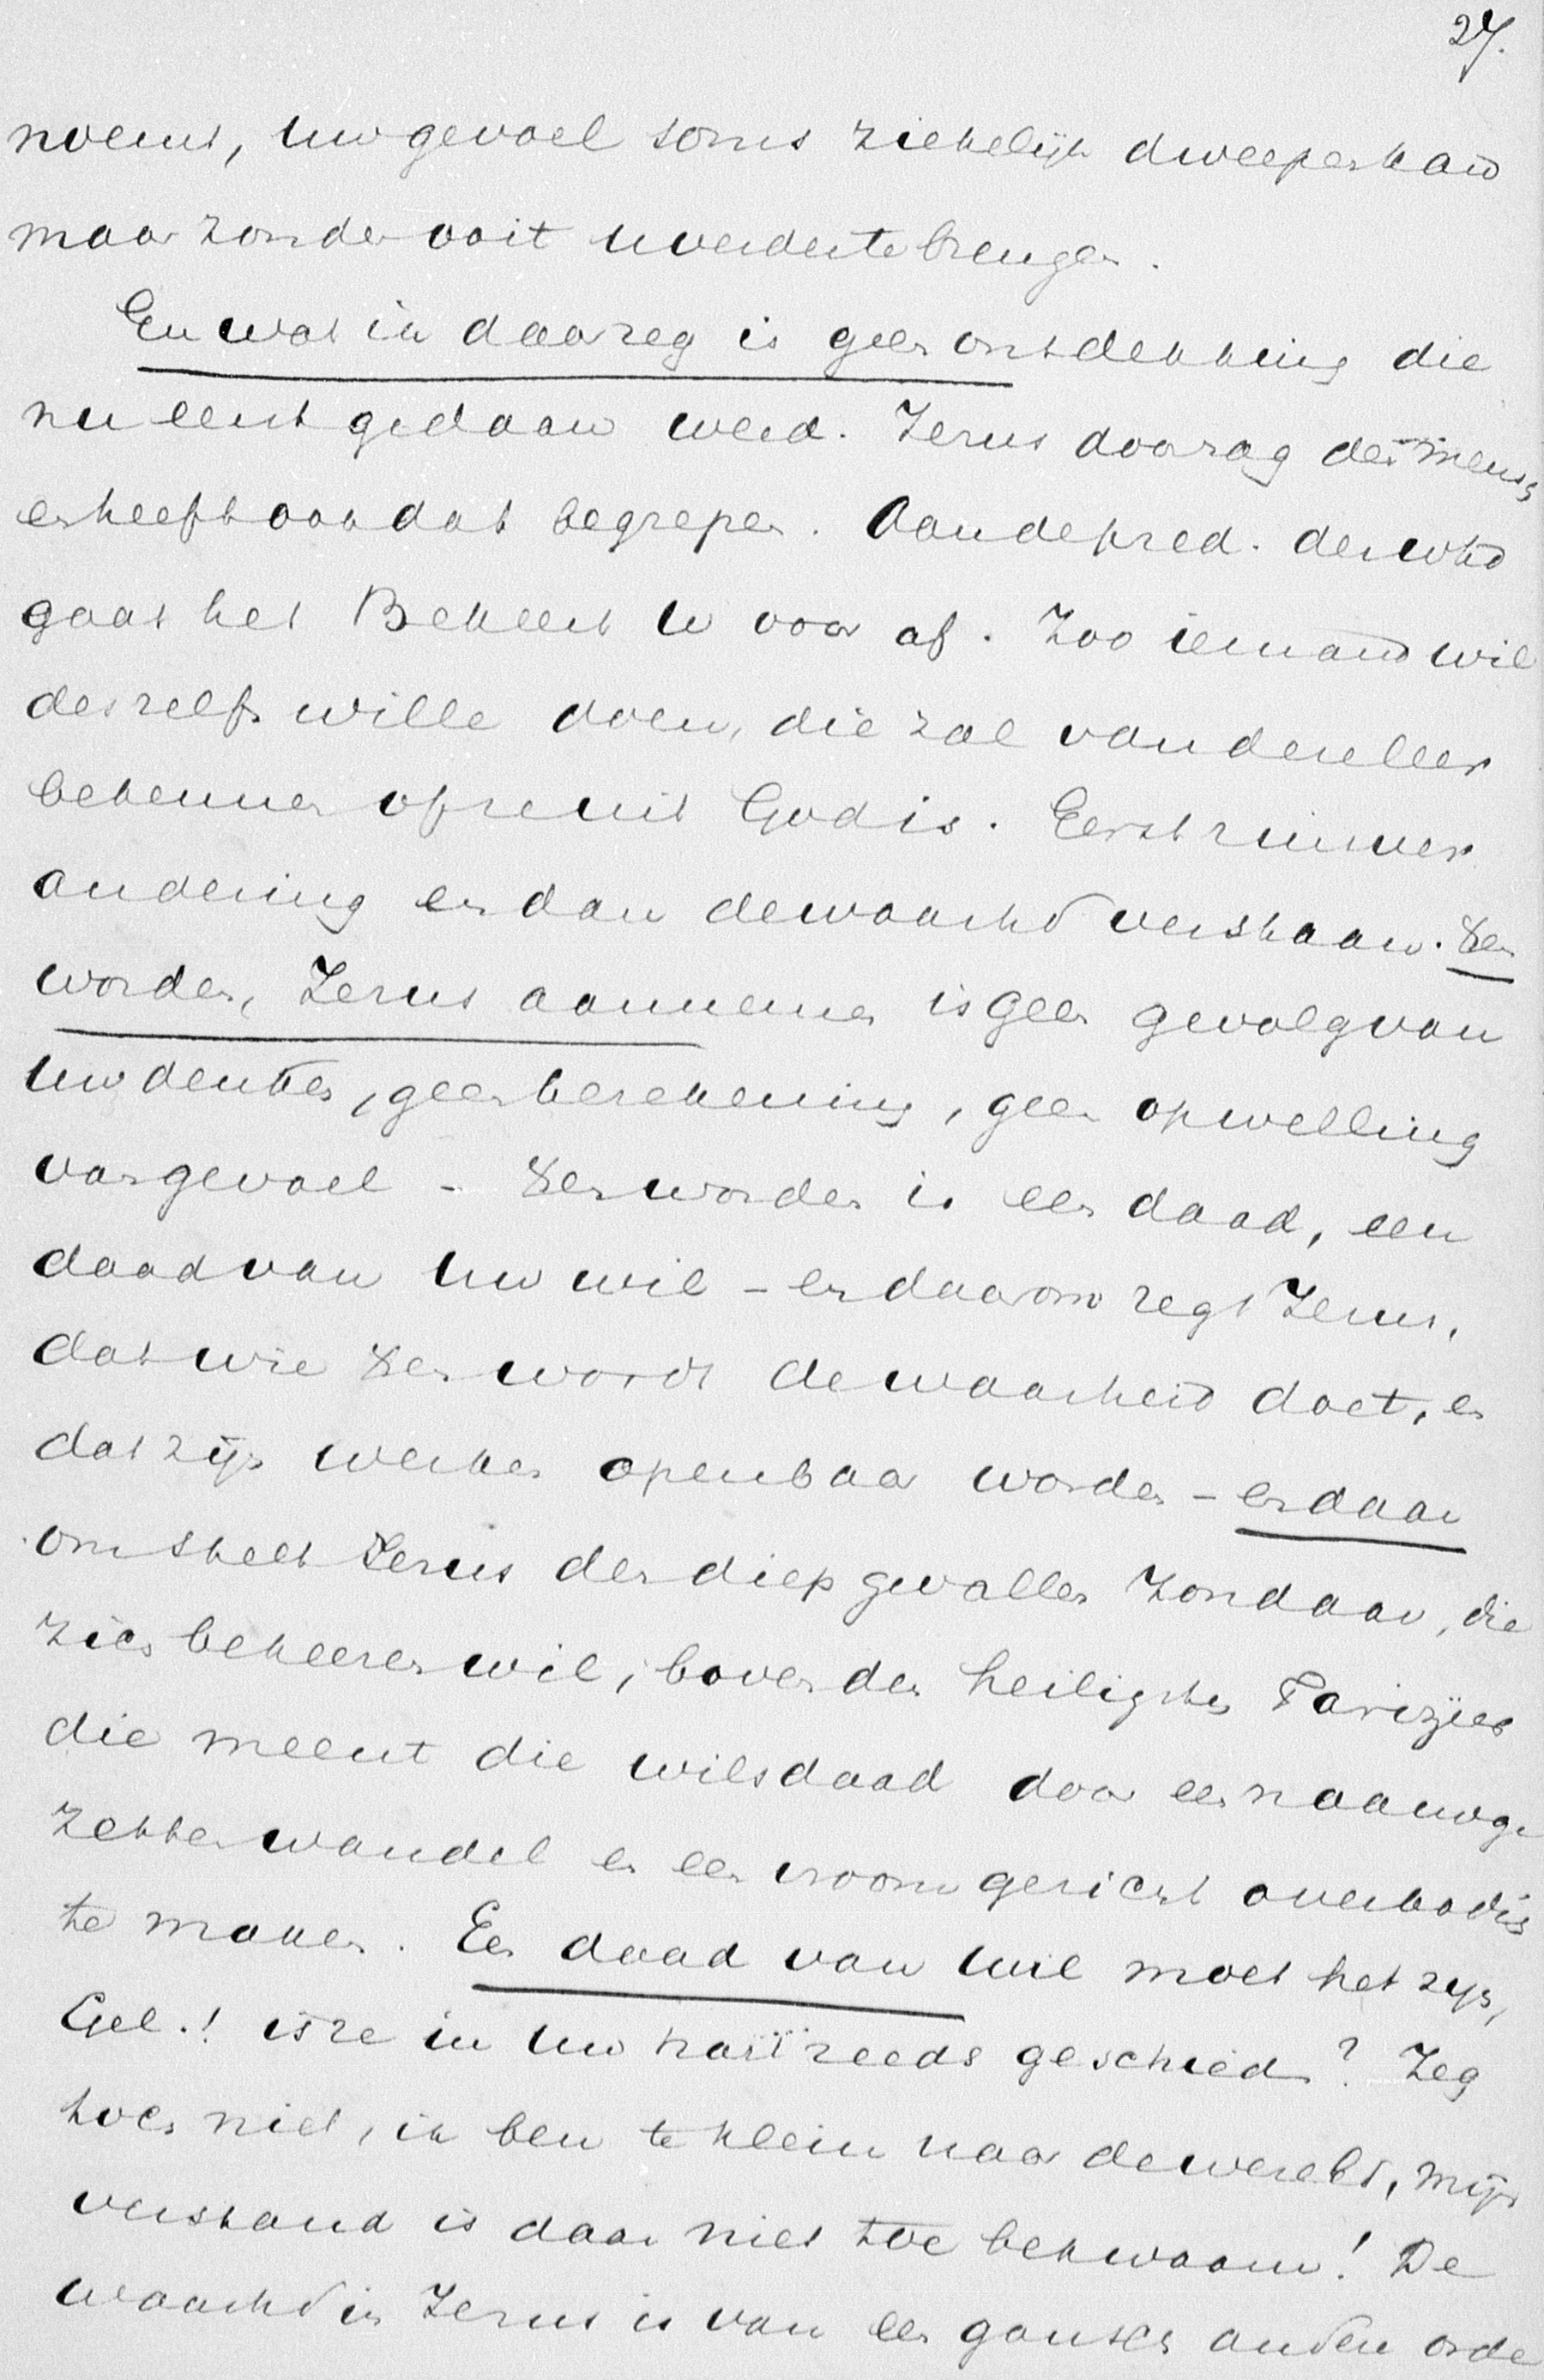 27.
noemt, uw gevoel soms ziekelijk dweepend
maar zonder ooit u verder te brengen.
En wat ik daar zeg is geen ontdekking die
nu eerst gedaan werd. Jezus doorzag den mensch
en heeft ook dat begrepen. Aan de pred. der whd
gaat het Bekeert U voor af. Zoo iemand wil
deszelfs wille doen, die zal van deze leer
bekennen of ze uit God is. Eerst zinsver
andering en dan de waarhd verstaan. Xen
worden, Jezus aannemen is geen gevolg van
uw denken, geen berekening, geen opwelling
van gevoel - Xen worden is een daad, een
daad van uw wil - en daarom zegt Jezus,
dat wie Xen wordt de waarheid doet, en
dat zijn werken openbaar worden - en daar
om stelt Jezus den diep gevallen zondaar, die
zich bekeeren wil, boven den heiligsten Farizeer
die meent die wilsdaad door een naauwge
zetten wandel en een vroom gezicht overbodig
te maken. Een daad van wil moet het zijn,
Gel.! is ze in uw hart reeds geschied? Zeg
toch niet, ik ben te klein naar de wereld, mijn
verstand is daar niet toe bekwaam! De
waarhd in Jezus is van een gansch andere orde